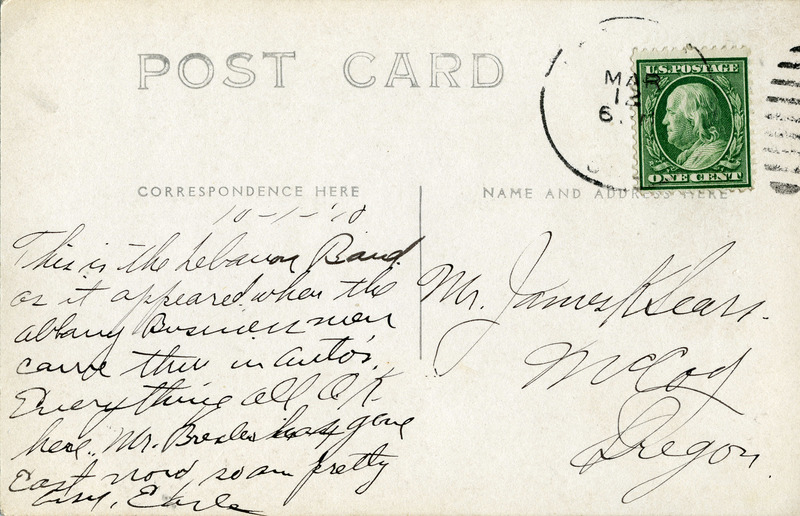 POST CARD
MAR
12
6
U.S. POSTAGE
ONE CENT
CORRESPONDENCE HERE
NAME AND ADDRESS HERE
10-1-'10
This is the Lebanon Band
as it appeared when the
Albany Business men
came thru in Auto's.
Everything all O.K.
here. Mr. has gone
East now so am pretty
busy, Earle
Mr. James K Sears.
McCoy
Oregon.